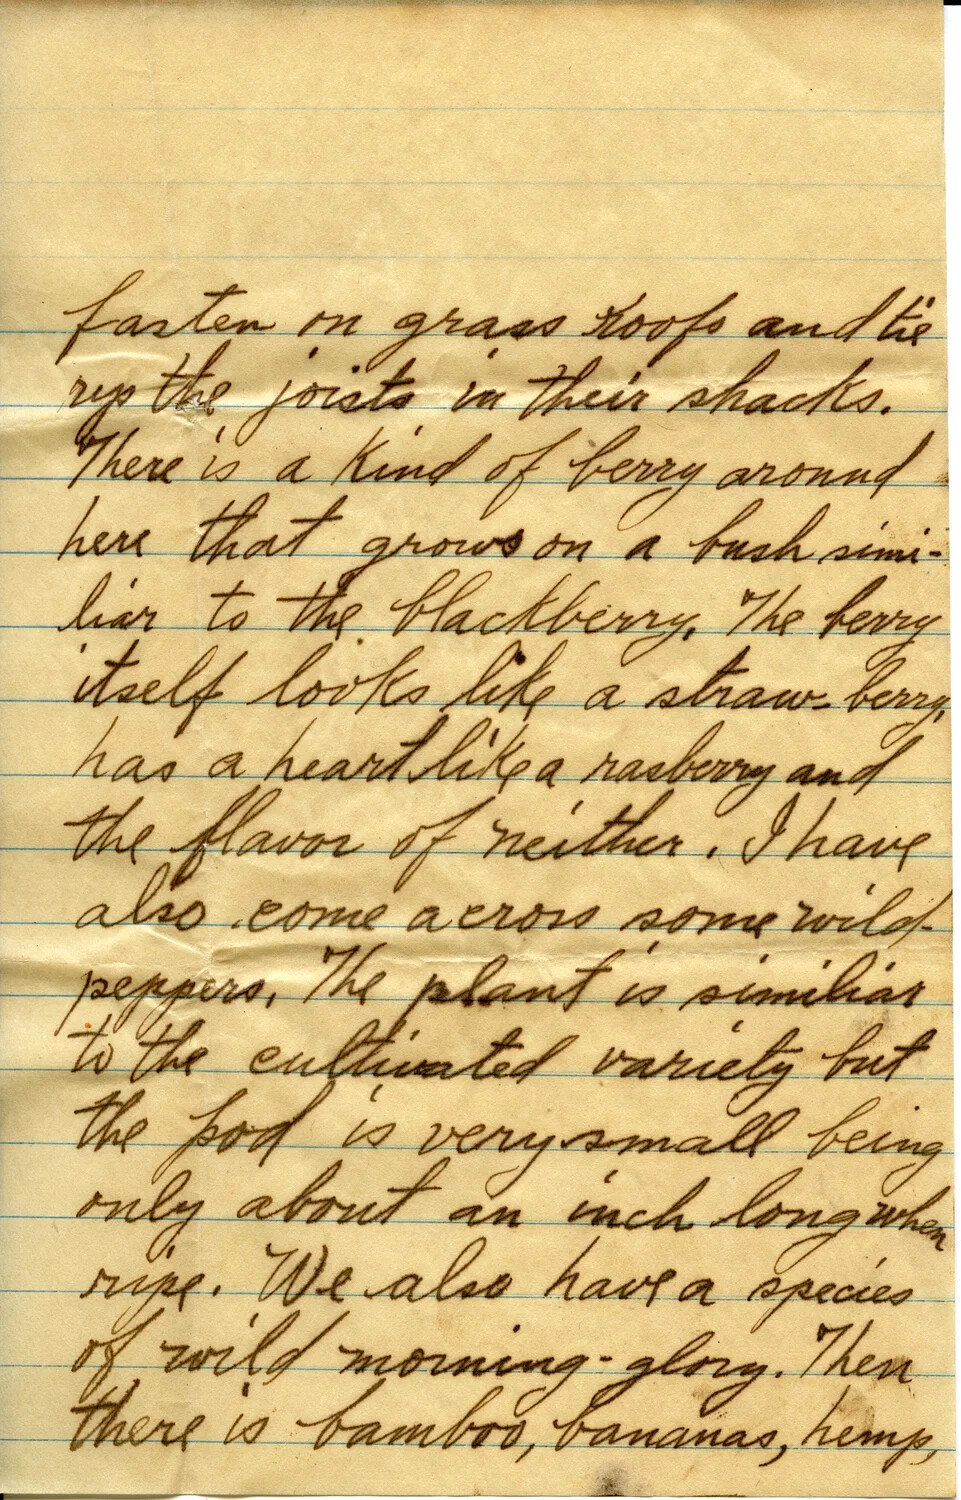 fasten on grass roofs and tie
up the joists in their shacks.
There is a kind of berry around
here that grows on a bush simi-
liar to the blackberry. The berry
itself looks like a straw-berry,
has a heart like a rasberry and
the flavor of neither. I have
also come across some wild-
peppers. The plant is similiar
to the cultivated variety but
the pod is very small being
only about an inch long when
ripe. We also have a species
of wild morning-glory. Then
there is bamboo, bananas, hemp,